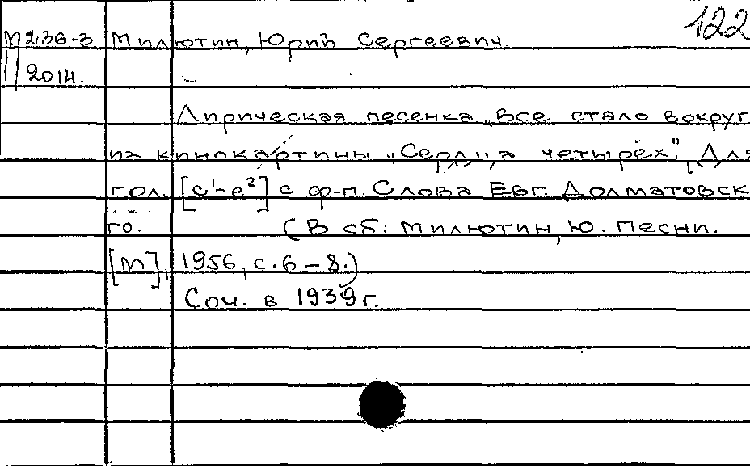 122
М 236-3 Милютин, Юрий Сергеевич.
2014.
Лирическая песенка „Все стало вокруг
из кинокартины „Сердца четырех". Для
гол. [c¹-e²] с ф-п. Слова Евг. Долматовск
го. (В сб: Милютин, Ю. Песни.
[М], 1956, с. 6-8.)
Соч. в 1939 г.